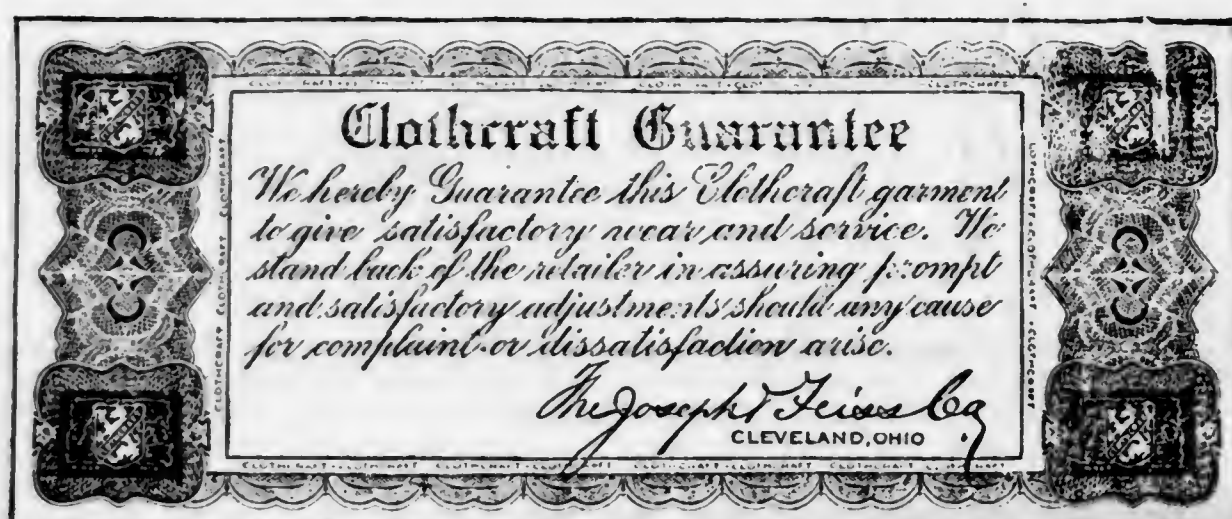 Clothcraft Guarantee
We hereby Guarantee this Clothcraft garment
to give satisfactory wear and service. We
stand back of the retailer in assuring prompt
and satisfactory adjustments should any cause
for complaint or dissatisfaction arise.
The Joseph & Feiss Co.
CLEVELAND, OHIO